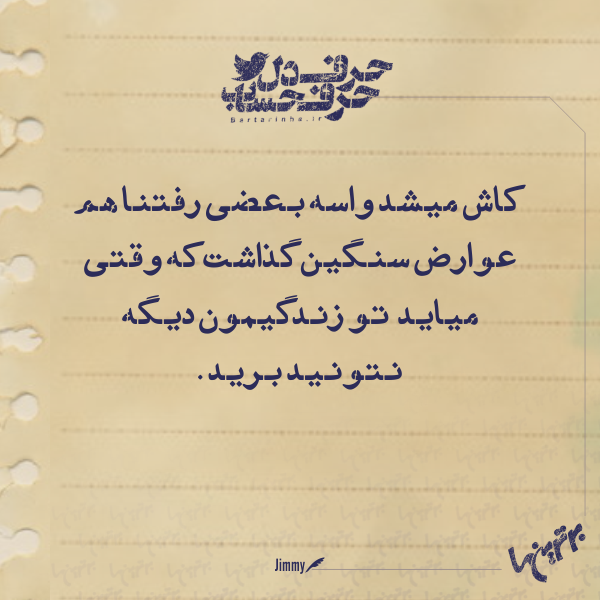 حرف دل
حرف حساب
Bartarinha.ir
کاش میشد واسه بعضی رفتنا هم
عوارض سنگین گذاشت که وقتی
میاید تو زندگیمون دیگه
نتونید برید.
Jimmy
برترین‌ها